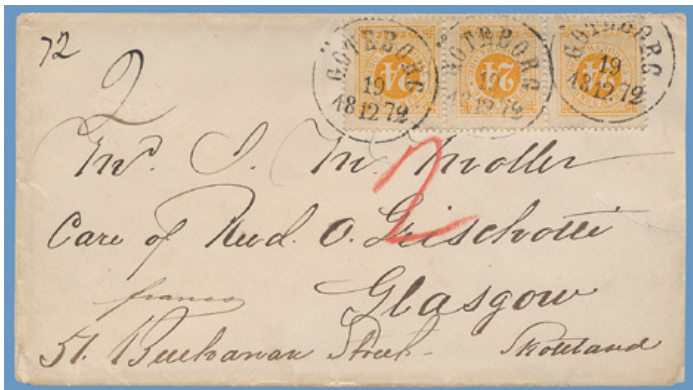 72
2
GÖTEBORG 19 18 12 72
GÖTEBORG 19 18 12 72
GÖTEBORG 19 18 12 72
24
24
24
2
Mr. J. M. Moller
Care of Revd. O. Grischotti
franco
Glasgow
51. Buchanan Street - Skottland